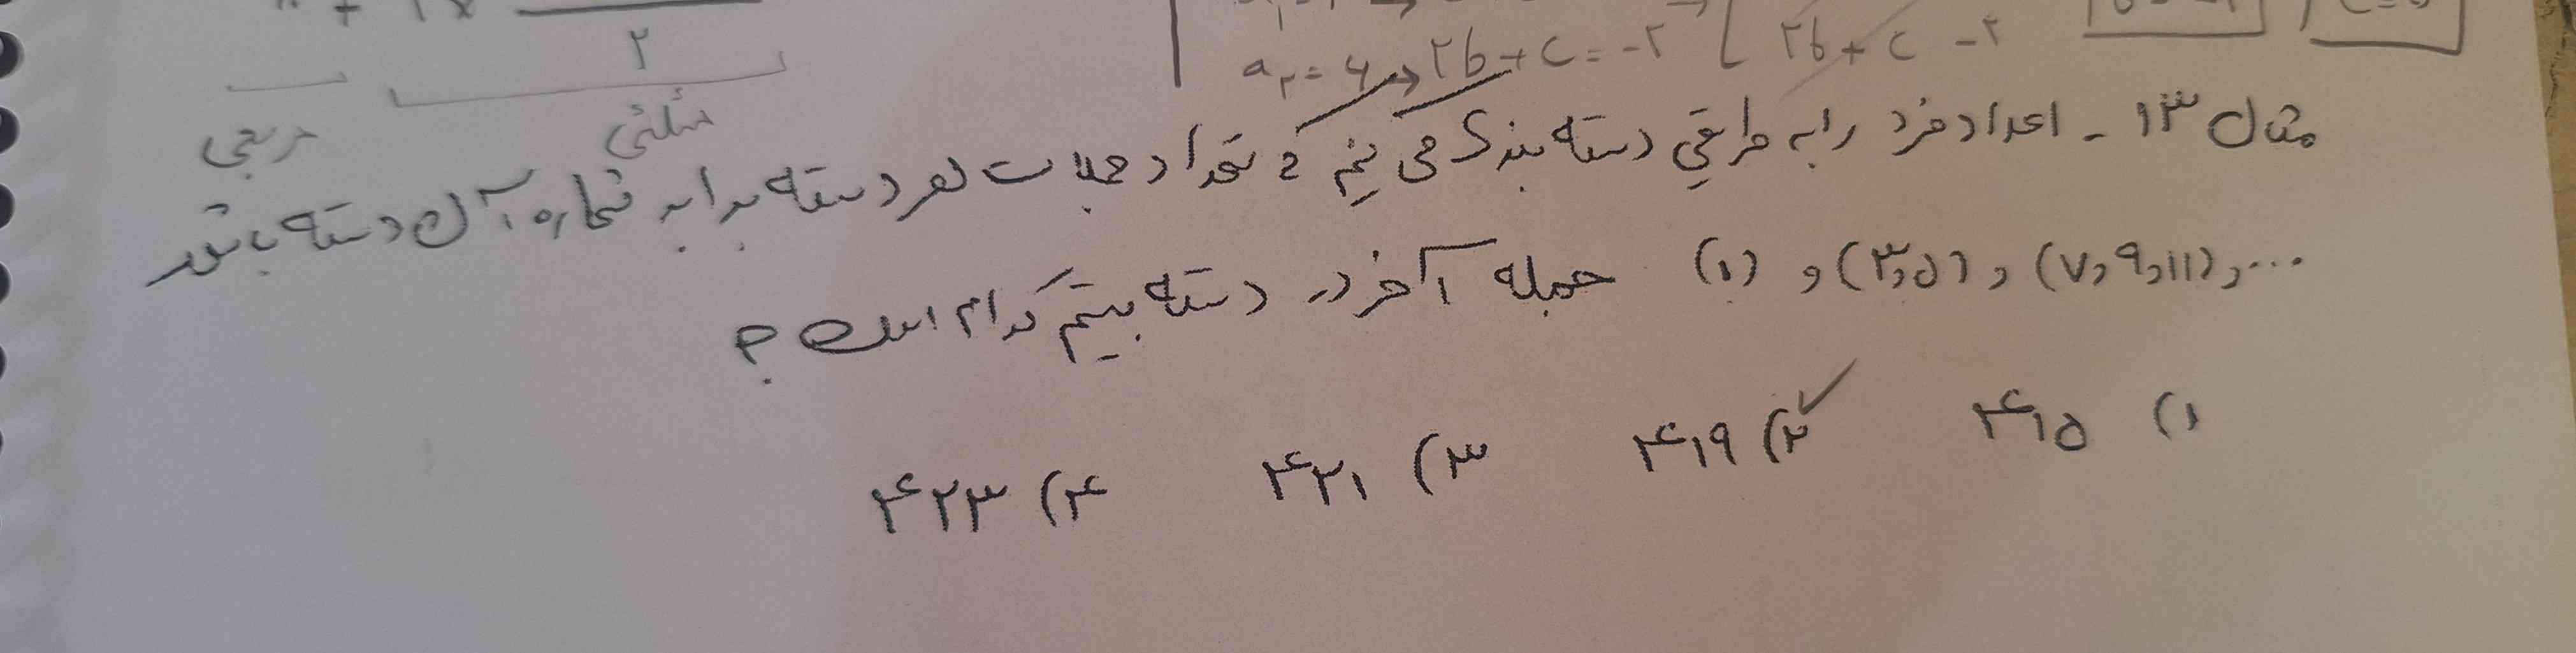 ۲
a₂ = ۶ → ۲b + c = -۲   ۲b + c - ۲
مربعی   مثلثی
مثال ۱۳ - اعداد فرد را به طریقی دسته بندی می کنیم که تعداد جملات هر دسته برابر شماره آن دسته باشد
(۱) و (۳,۵) و (۷,۹,۱۱) و ... جمله آخر در دسته بیستم کدام است ؟
۱) ۴۱۵   ۲) ۴۱۹   ۳) ۴۲۱   ۴) ۴۲۳